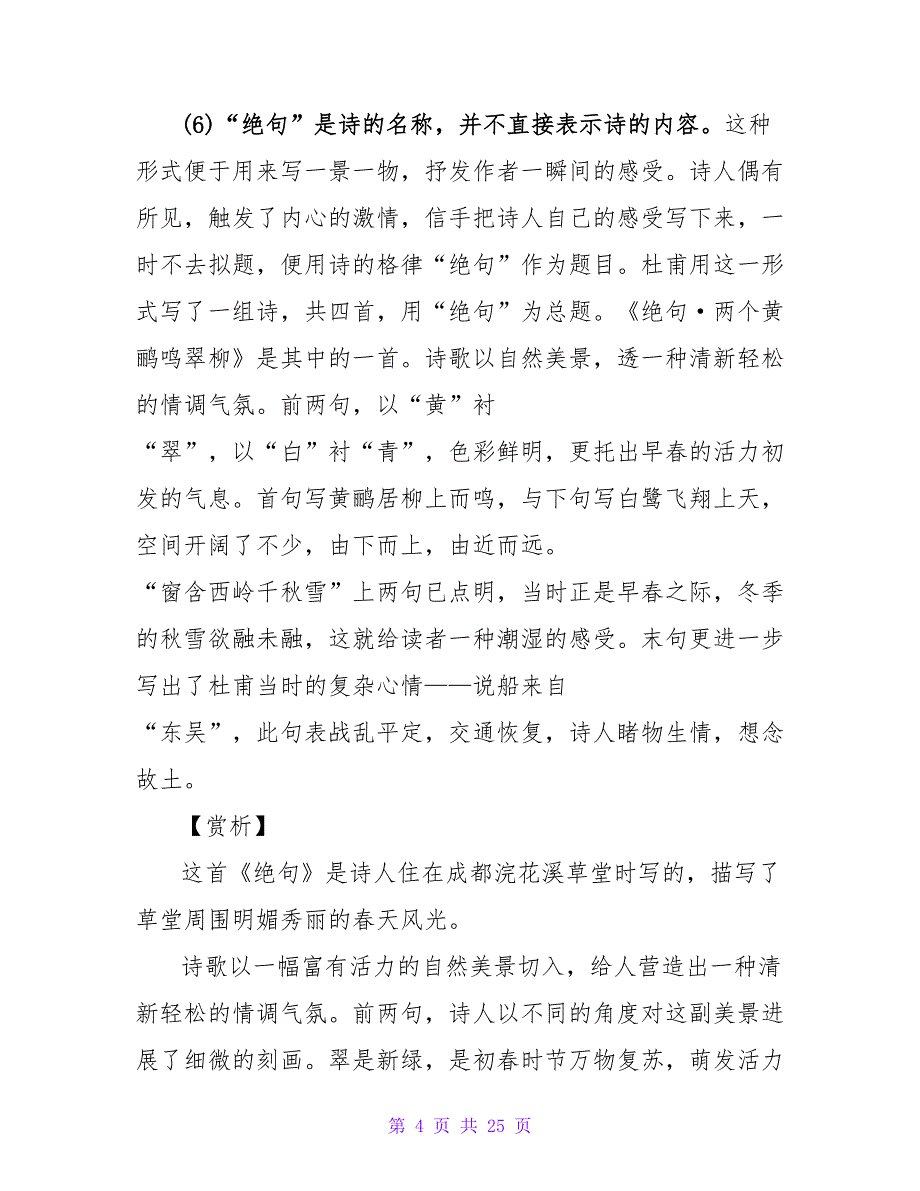 (6)“绝句”是诗的名称，并不直接表示诗的内容。这种
形式便于用来写一景一物，抒发作者一瞬间的感受。诗人偶有
所见，触发了内心的激情，信手把诗人自己的感受写下来，一
时不去拟题，便用诗的格律“绝句”作为题目。杜甫用这一形
式写了一组诗，共四首，用“绝句”为总题。《绝句·两个黄
鹂鸣翠柳》是其中的一首。诗歌以自然美景，透一种清新轻松
的情调气氛。前两句，以“黄”衬
“翠”，以“白”衬“青”，色彩鲜明，更托出早春的活力初
发的气息。首句写黄鹂居柳上而鸣，与下句写白鹭飞翔上天，
空间开阔了不少，由下而上，由近而远。
“窗含西岭千秋雪”上两句已点明，当时正是早春之际，冬季
的秋雪欲融未融，这就给读者一种潮湿的感受。末句更进一步
写出了杜甫当时的复杂心情——说船来自
“东吴”，此句表战乱平定，交通恢复，诗人睹物生情，想念
故土。
【赏析】
这首《绝句》是诗人住在成都浣花溪草堂时写的，描写了
草堂周围明媚秀丽的春天风光。
诗歌以一幅富有活力的自然美景切入，给人营造出一种清
新轻松的情调气氛。前两句，诗人以不同的角度对这副美景进
展了细微的刻画。翠是新绿，是初春时节万物复苏，萌发活力
第 4 页 共 25 页